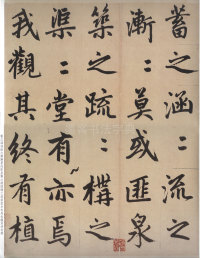 蓄之涵〻流之
漸〻莫或匪泉
築之疏〻構之
渠〻堂有亦焉
我觀其終有植